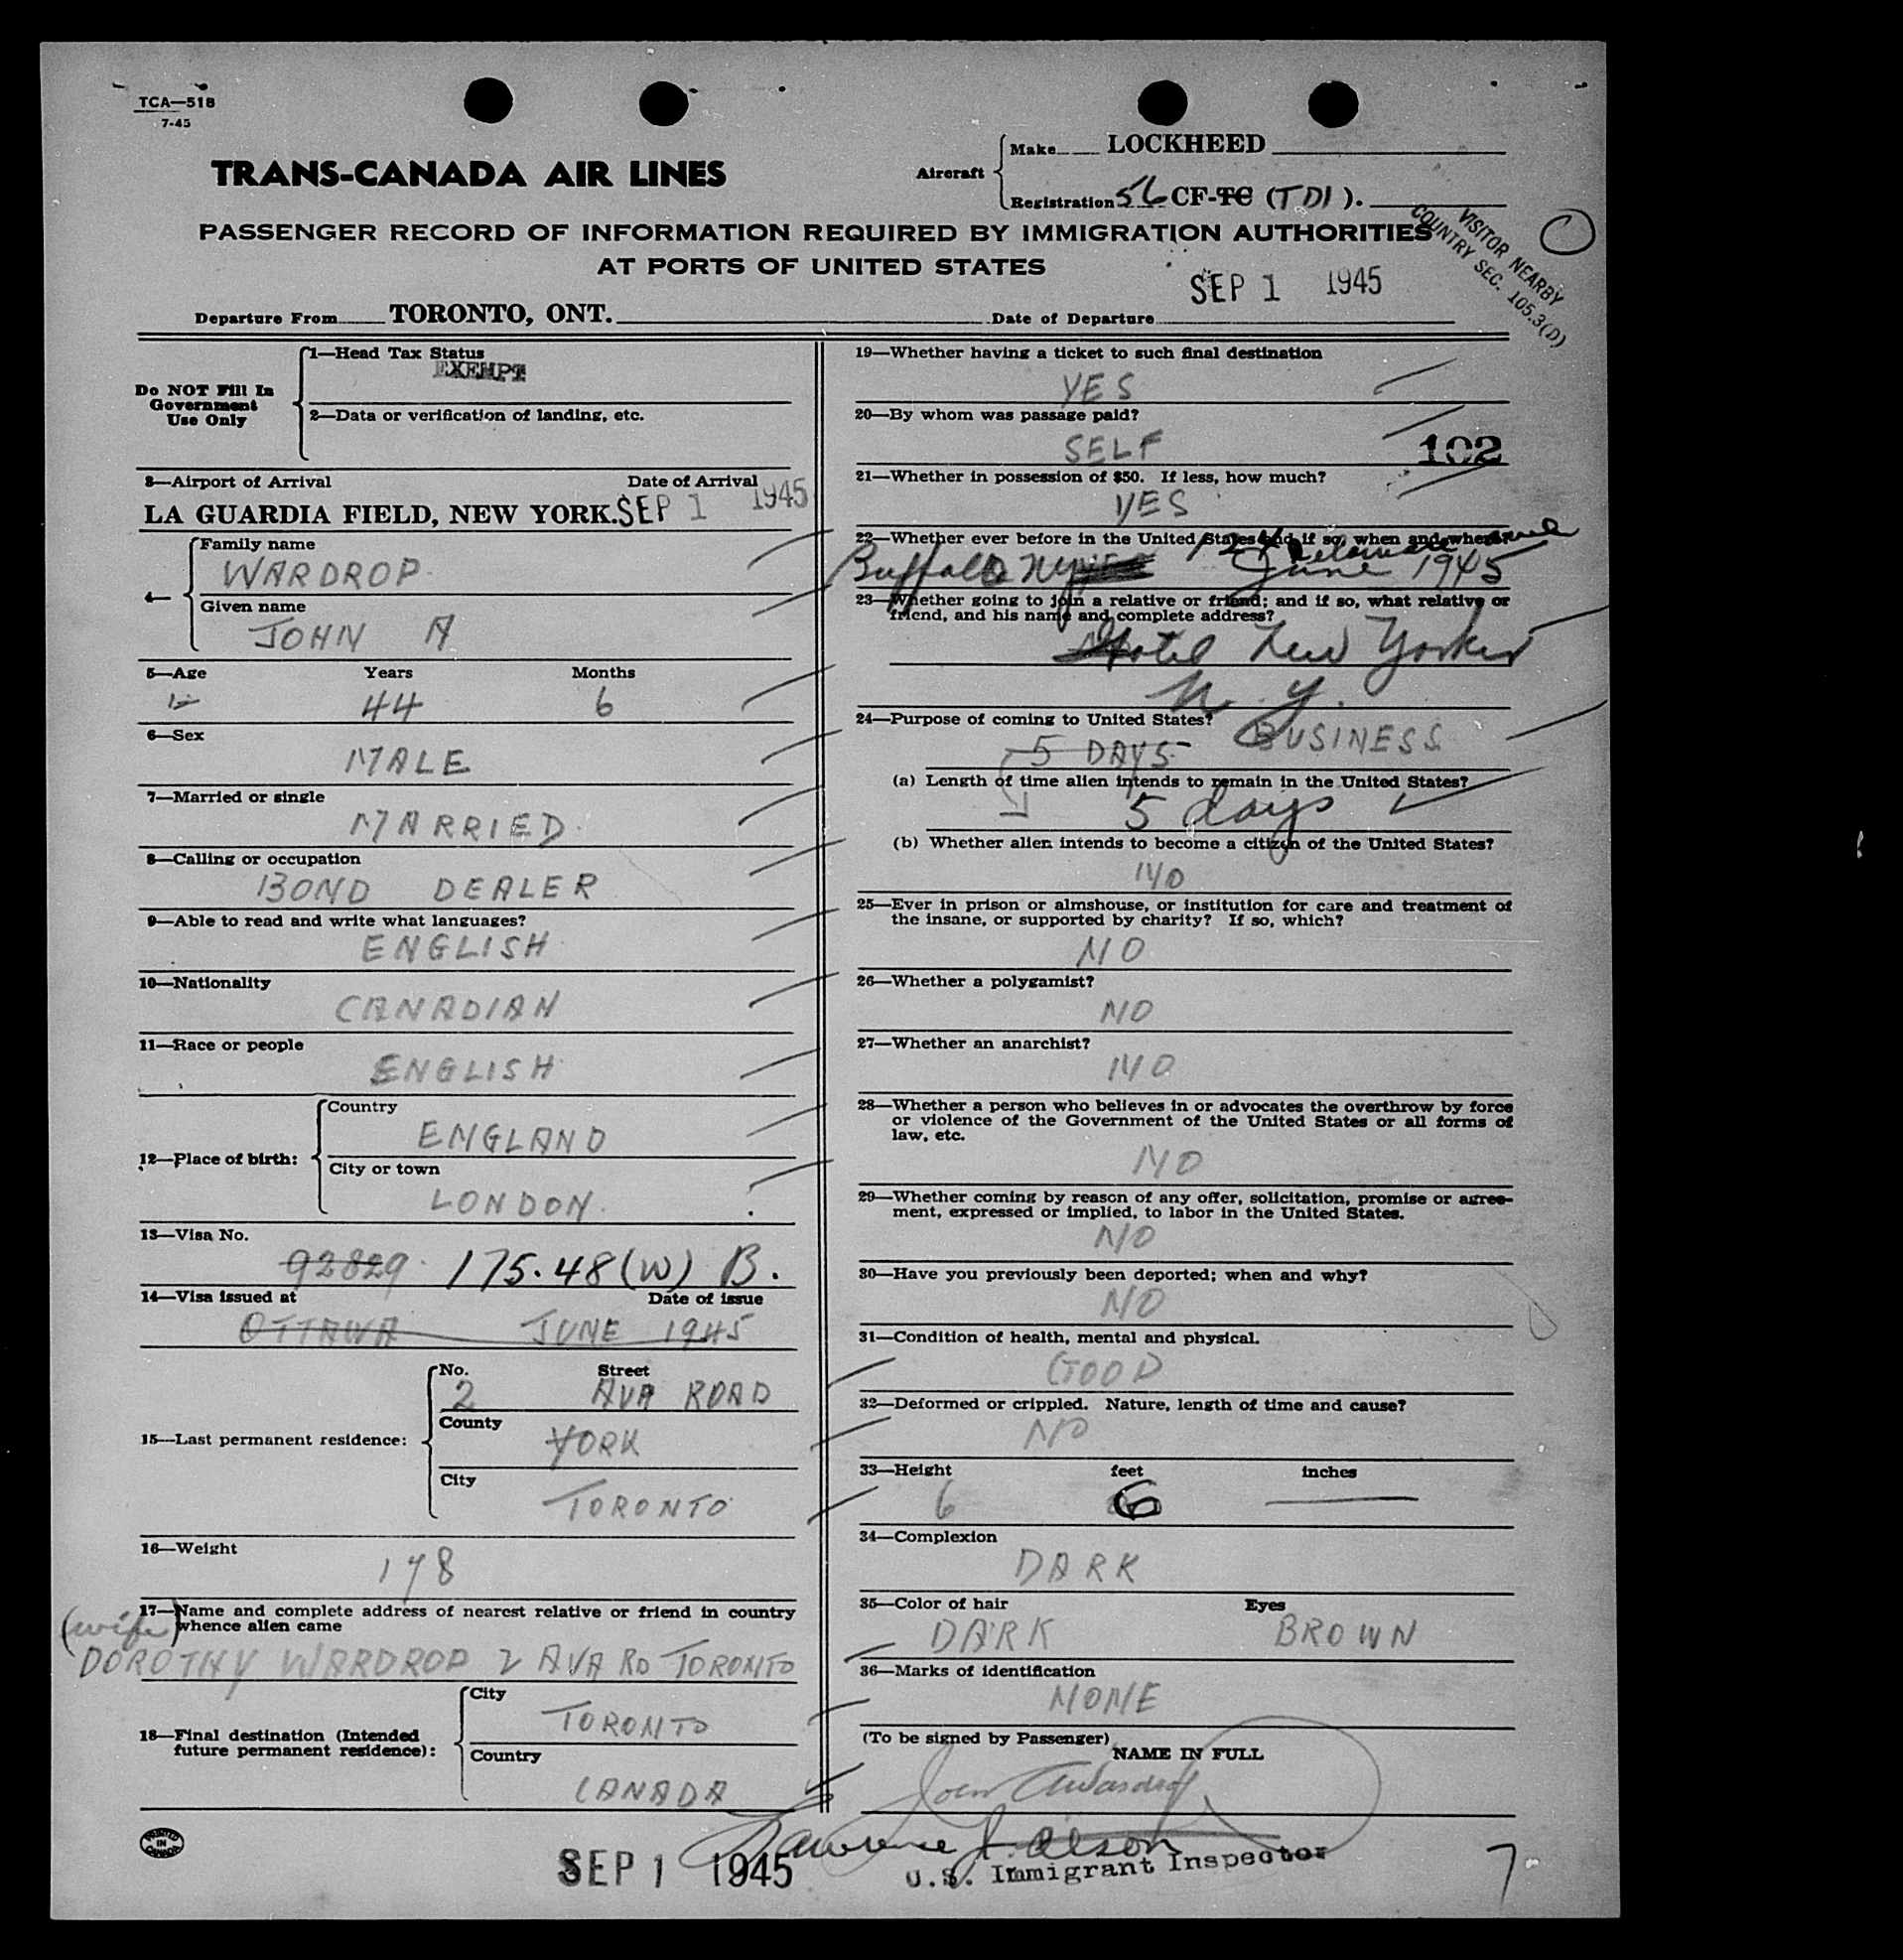 TCA—518
7-45
TRANS-CANADA AIR LINES
Aircraft
Make LOCKHEED
Registration 56 CF-TC (TDI).
PASSENGER RECORD OF INFORMATION REQUIRED BY IMMIGRATION AUTHORITIES
AT PORTS OF UNITED STATES
VISITOR NEARBY
COUNTRY SEC. 105.3(D)
SEP 1 1945
Departure From TORONTO, ONT. Date of Departure
Do NOT Fill In
Government
Use Only
1—Head Tax Status
EXEMPT
2—Data or verification of landing, etc.
3—Airport of Arrival Date of Arrival
LA GUARDIA FIELD, NEW YORK. SEP 1 1945
4—
Family name
WARDROP
Given name
JOHN A
5—Age Years Months
44 6
6—Sex
MALE
7—Married or single
MARRIED
8—Calling or occupation
BOND DEALER
9—Able to read and write what languages?
ENGLISH
10—Nationality
CANADIAN
11—Race or people
ENGLISH
12—Place of birth:
Country
ENGLAND
City or town
LONDON
13—Visa No.
92829 175.48(W) B.
14—Visa issued at Date of issue
OTTAWA JUNE 1945
15—Last permanent residence:
No. Street
2 AVA ROAD
County
YORK
City
TORONTO
16—Weight
178
17—Name and complete address of nearest relative or friend in country
whence alien came
(wife)
DOROTHY WARDROP 2 AVA RD TORONTO
18—Final destination (Intended
future permanent residence):
City
TORONTO
Country
CANADA
19—Whether having a ticket to such final destination
YES
20—By whom was passage paid?
SELF
102
21—Whether in possession of $50. If less, how much?
YES
22—Whether ever before in the United States and if so, when and where?
Delaware
Buffalo NY June 1945
23—Whether going to join a relative or friend; and if so, what relative or
friend, and his name and complete address?
Hotel New Yorker
N.Y.
24—Purpose of coming to United States?
5 DAYS BUSINESS
(a) Length of time alien intends to remain in the United States?
5 days
(b) Whether alien intends to become a citizen of the United States?
NO
25—Ever in prison or almshouse, or institution for care and treatment of
the insane, or supported by charity? If so, which?
NO
26—Whether a polygamist?
NO
27—Whether an anarchist?
NO
28—Whether a person who believes in or advocates the overthrow by force
or violence of the Government of the United States or all forms of
law, etc.
NO
29—Whether coming by reason of any offer, solicitation, promise or agree-
ment, expressed or implied, to labor in the United States.
NO
30—Have you previously been deported; when and why?
NO
31—Condition of health, mental and physical.
GOOD
32—Deformed or crippled. Nature, length of time and cause?
NO
33—Height feet inches
6 6
34—Complexion
DARK
35—Color of hair Eyes
DARK BROWN
36—Marks of identification
NONE
(To be signed by Passenger)
NAME IN FULL
John A Wardrop
PRINTED
IN
CANADA
SEP 1 1945
Lawrence J. Olson
U.S. Immigrant Inspector
7